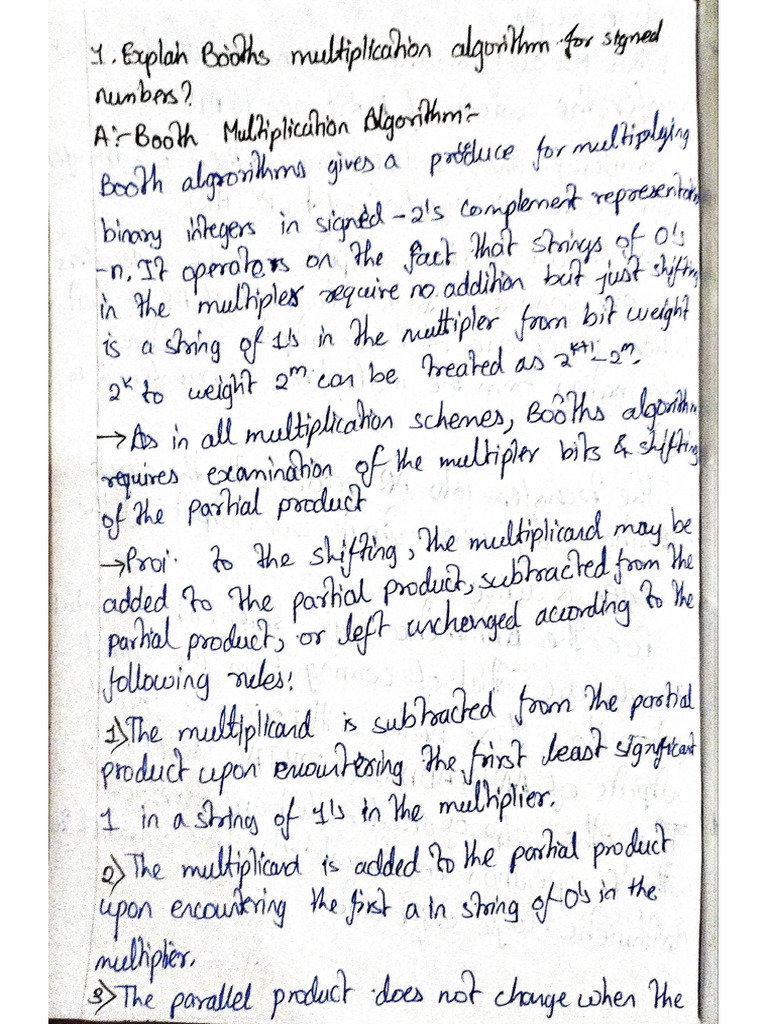 1. Explain Booths multiplication algorithm for signed
numbers?
A:- Booth Multiplication Algorithm:-
Booth algrorithms gives a produce for multiplying
binary integers in signed -2's complement representatio
-n. It operators on the fact that strings of 0's
in the multipler require no addition but just shifting
is a string of 1's in the multipler from bit weight
2^k to weight 2^m can be treated as 2^k+1 - 2^m.
→As in all multiplication schemes, Booths algorithm
requires examination of the multipler bits & shifting
of the partial product
→Proi. to the shifting, the multiplicand may be
added to the partial product, subtracted from the
partial product, or left unchenged according to the
following rules!
1) The multiplicand is subtracted from the partial
product upon encountering the first least significant
1 in a string of 1's in the multiplier.
2) The multiplicand is added to the partial product
upon encountering the first a in string of 0's in the
multiplier.
3) The parallel product does not change when the